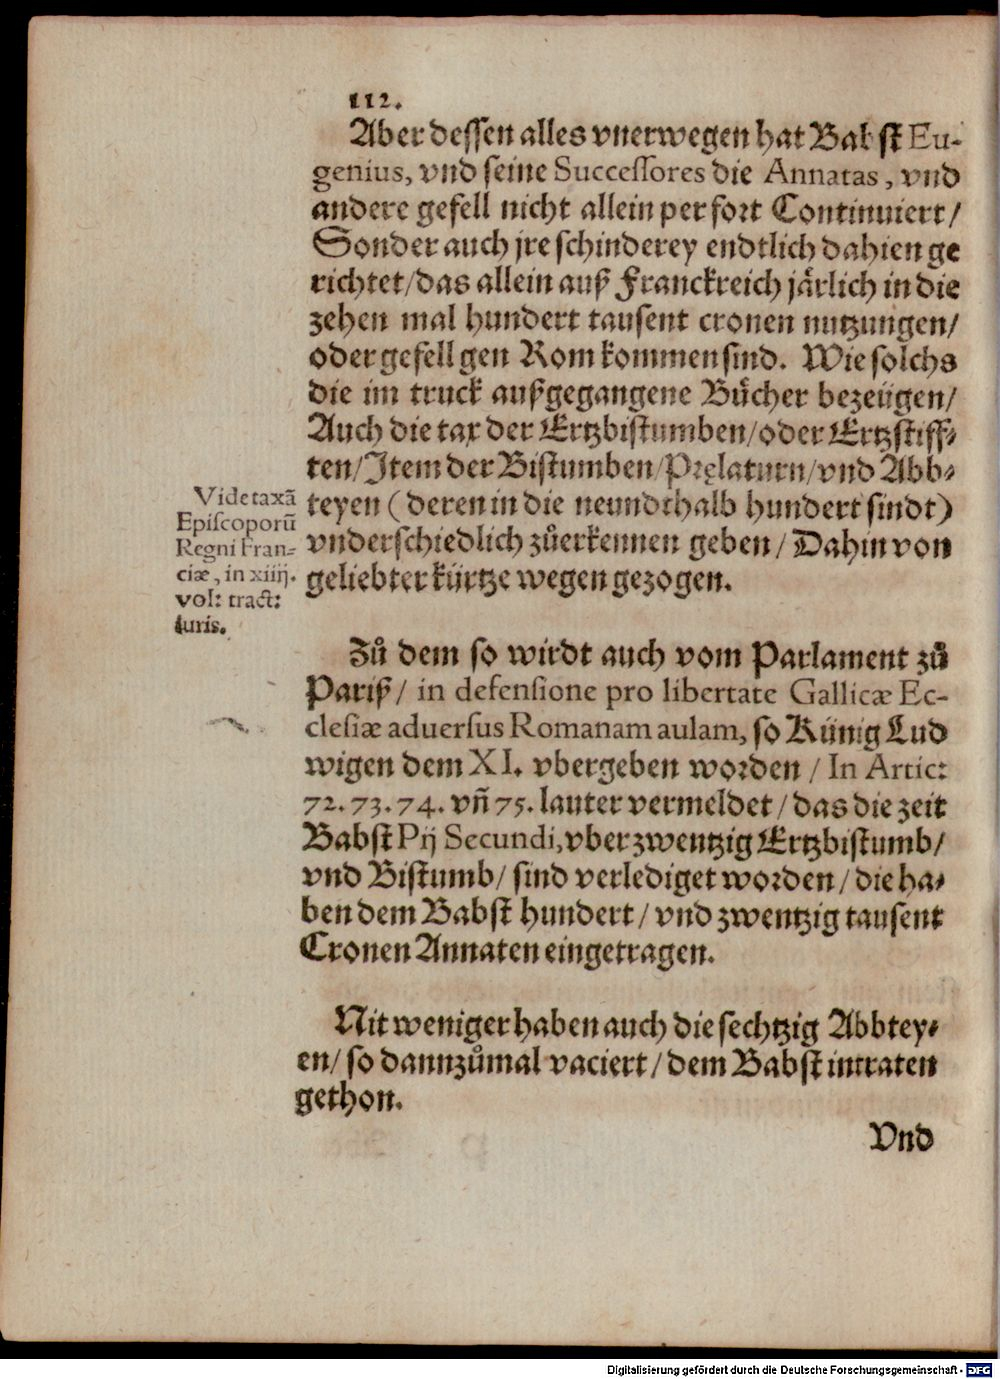 112.
Aber dessen alles vnerwegen hat Babst Eu-
genius, vnd seine Successores die Annatas, vnd
andere gefell nicht allein per fort Continuiert/
Sonder auch jre schinderey endtlich dahien ge
richtet/das allein auß Franckreich jaͤrlich in die
zehen mal hundert tausent cronen nutzungen/
oder gefell gen Rom kommen sind. Wie solchs
die im truck außgegangene Buͤcher bezeügen/
Auch die tax der Ertzbistumben/oder Ertzstiff-
ten/Item der Bistumben/Pręlaturn/vnd Abb-
teyen (deren in die neundthalb hundert sindt)
vnderschiedlich zůerkennen geben/Dahin von
geliebter kürtze wegen gezogen.
Vide taxã
Episcoporũ
Regni Fran-
ciæ, in xiiij.
vol: tract:
iuris.
Zů dem so wirdt auch vom Parlament zů
Pariß/ in defensione pro libertate Gallicæ Ec-
clesiæ aduersus Romanam aulam, so Künig Lud
wigen dem XI. vbergeben worden / In Artic:
72. 73. 74. vñ 75. lauter vermeldet/das die zeit
Babst Pij Secundi, vber zwentzig Ertzbistumb/
vnd Bistumb/ sind verlediget worden/die ha-
ben dem Babst hundert/vnd zwentzig tausent
Cronen Annaten eingetragen.
Nit weniger haben auch die sechtzig Abbtey-
en/so dannzůmal vaciert/dem Babst intraten
gethon.
Vnd
Digitalisierung gefördert durch die Deutsche Forschungsgemeinschaft - DFG